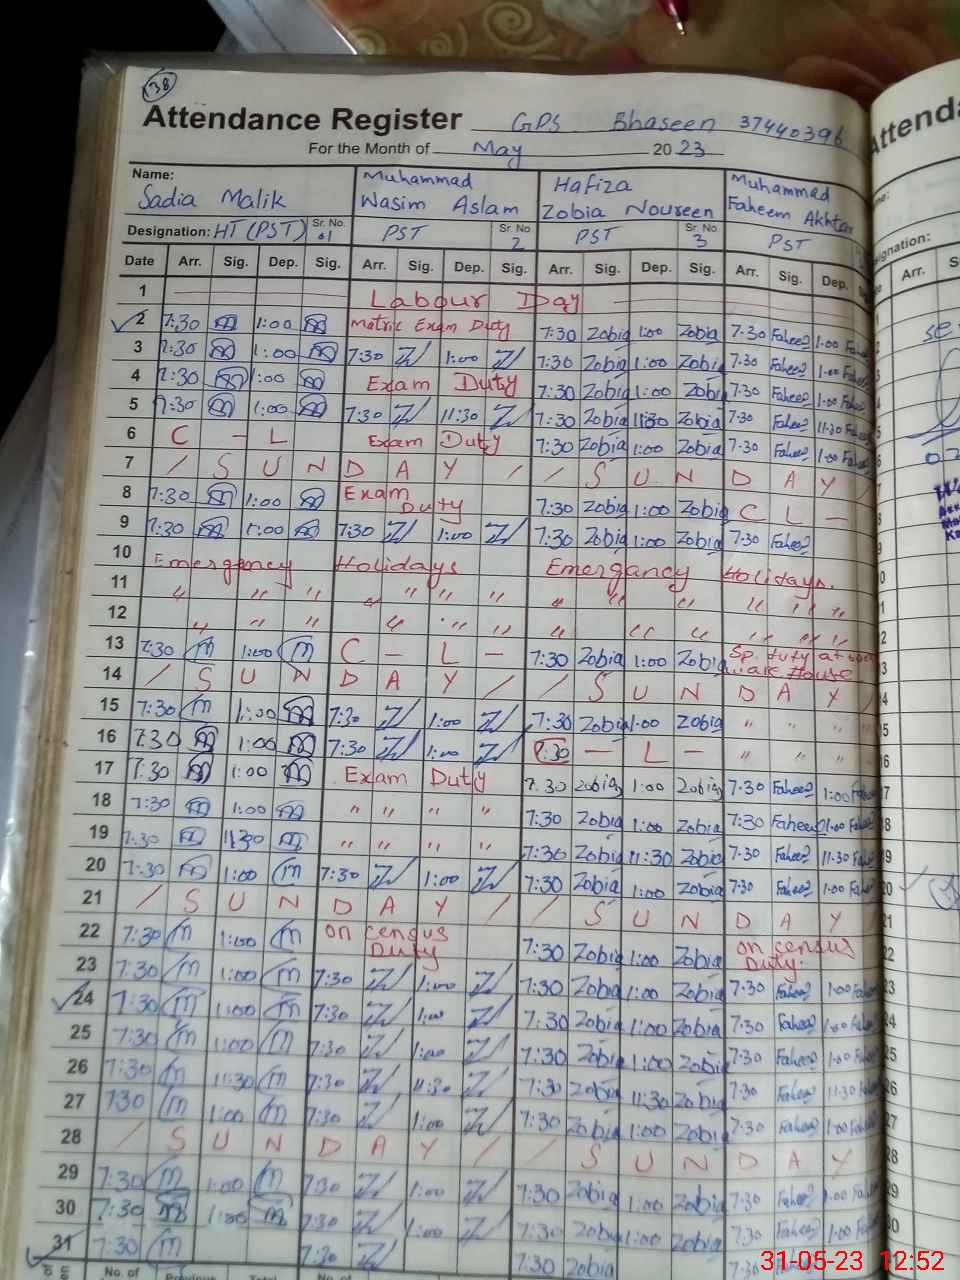 138
Attendance Register GPS Bhaseen 37440396
For the Month of May 2023
Name: Sadia Malik Muhammad Wasim Aslam Hafiza Zobia Noureen Muhammad Faheem Akhtar
Designation: HT (PST) Sr. No. 01 PST Sr. No 2 PST Sr. No. 3 PST
Date Arr. Sig. Dep. Sig. Arr. Sig. Dep. Sig. Arr. Sig. Dep. Sig. Arr. Sig. Dep.
1 Labour Day
2 7:30 1:00 Matric Exam Duty 7:30 Zobia 1:00 Zobia 7:30 Faheem 1:00
3 7:30 1:00 7:30 1:00 7:30 Zobia 1:00 Zobia 7:30 Faheem 1:00
4 7:30 1:00 Exam Duty 7:30 Zobia 1:00 Zobia 7:30 Faheem 1:00
5 7:30 1:00 7:30 11:30 7:30 Zobia 11:30 Zobia 7:30 Faheem 11:30
6 C - L Exam Duty 7:30 Zobia 1:00 Zobia 7:30 Faheem 1:00
7 / S U N D A Y / / S U N D A Y /
8 7:30 1:00 Exam Duty 7:30 Zobia 1:00 Zobia C L -
9 7:30 1:00 7:30 1:00 7:30 Zobia 1:00 Zobia 7:30 Faheem
10 Emergency Holidays Emergancy Holidays.
11 " " " " " " " " " " " " "
12 " " " " " " " " " " " " "
13 7:30 1:00 C - L - 7:30 Zobia 1:00 Zobia Sp. duty at House
14 / S U N D A Y / / S U N D A Y /
15 7:30 1:00 7:30 1:00 7:30 Zobia 1:00 Zobia " " "
16 7:30 1:00 7:30 1:00 C - L - " " "
17 7:30 1:00 Exam Duty 7:30 Zobia 1:00 Zobia 7:30 Faheem 1:00
18 7:30 1:00 " " " " 7:30 Zobia 1:00 Zobia 7:30 Faheem 1:00
19 7:30 11:30 " " " " 7:30 Zobia 11:30 Zobia 7:30 Faheem 11:30
20 7:30 1:00 7:30 1:00 7:30 Zobia 1:00 Zobia 7:30 Faheem 1:00
21 / S U N D A Y / / S U N D A Y
22 7:30 1:00 on census Duty 7:30 Zobia 1:00 Zobia on census Duty.
23 7:30 1:00 7:30 1:00 7:30 Zobia 1:00 Zobia 7:30 Faheem 1:00
24 7:30 1:00 7:30 1:00 7:30 Zobia 1:00 Zobia 7:30 Faheem 1:00
25 7:30 1:00 7:30 1:00 7:30 Zobia 1:00 Zobia 7:30 Faheem 1:00
26 7:30 11:30 7:30 11:30 7:30 Zobia 11:30 Zobia 7:30 Faheem 11:30
27 7:30 1:00 7:30 1:00 7:30 Zobia 1:00 Zobia 7:30 Faheem 1:00
28 / S U N D A Y / / S U N D A Y
29 7:30 1:00 7:30 1:00 7:30 Zobia 1:00 Zobia 7:30 Faheem 1:00
30 7:30 1:00 7:30 1:00 7:30 Zobia 1:00 Zobia 7:30 Faheem 1:00
31 7:30 7:30 7:30 Zobia 7:30
No. of Previous Total No. of
31-05-23 12:52